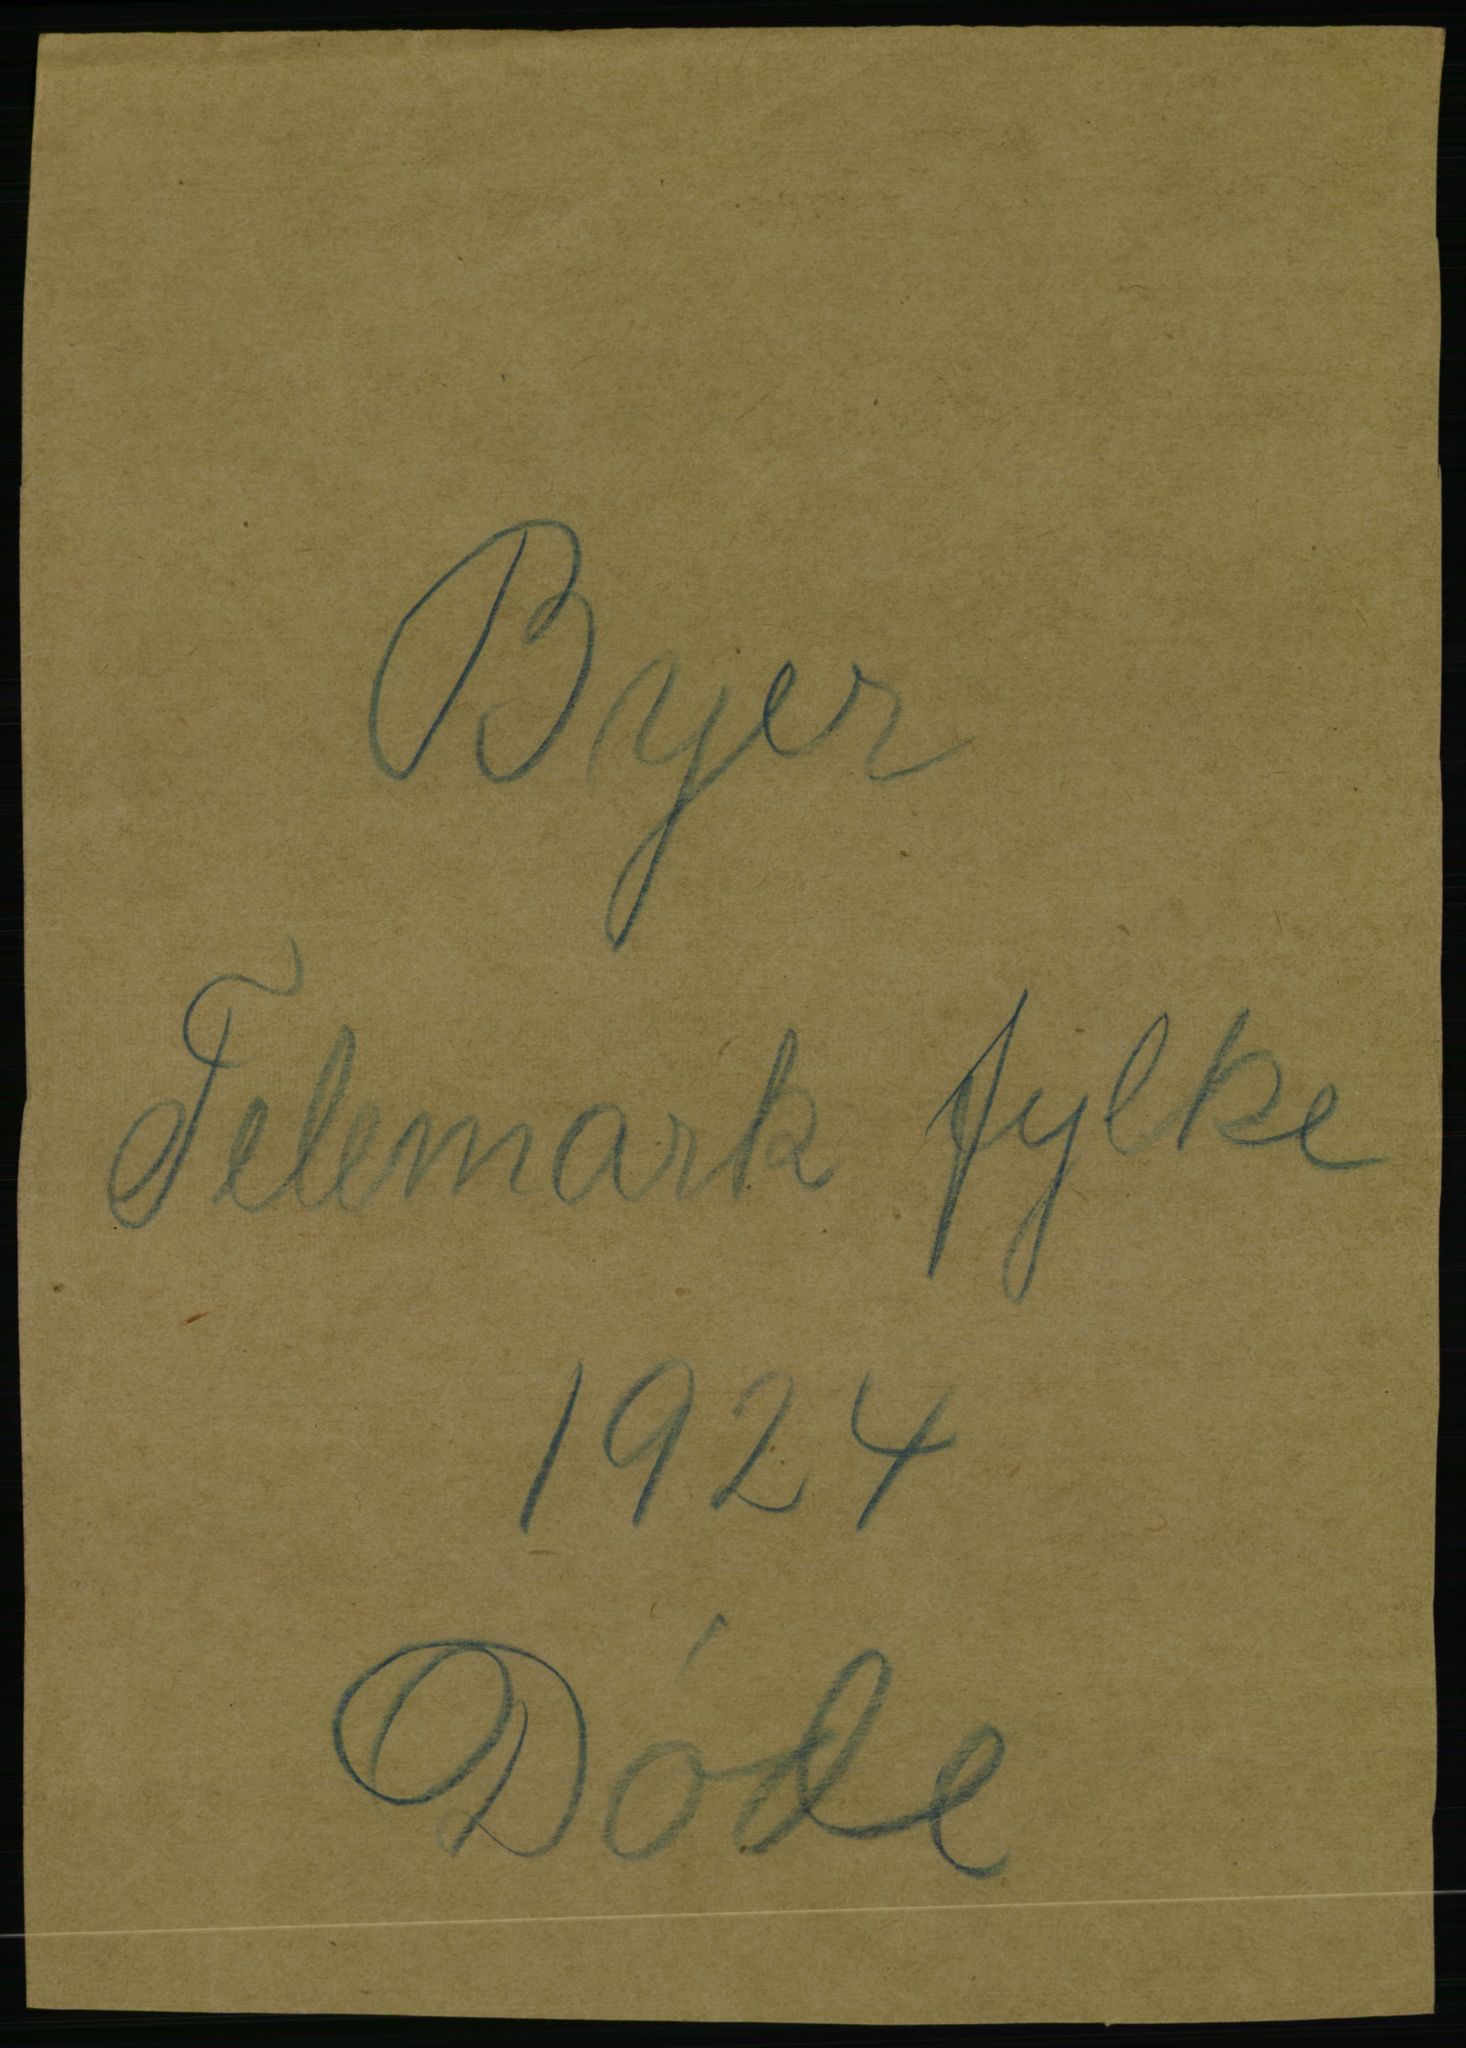 Byer
Telemark fylke
1924
Dóde